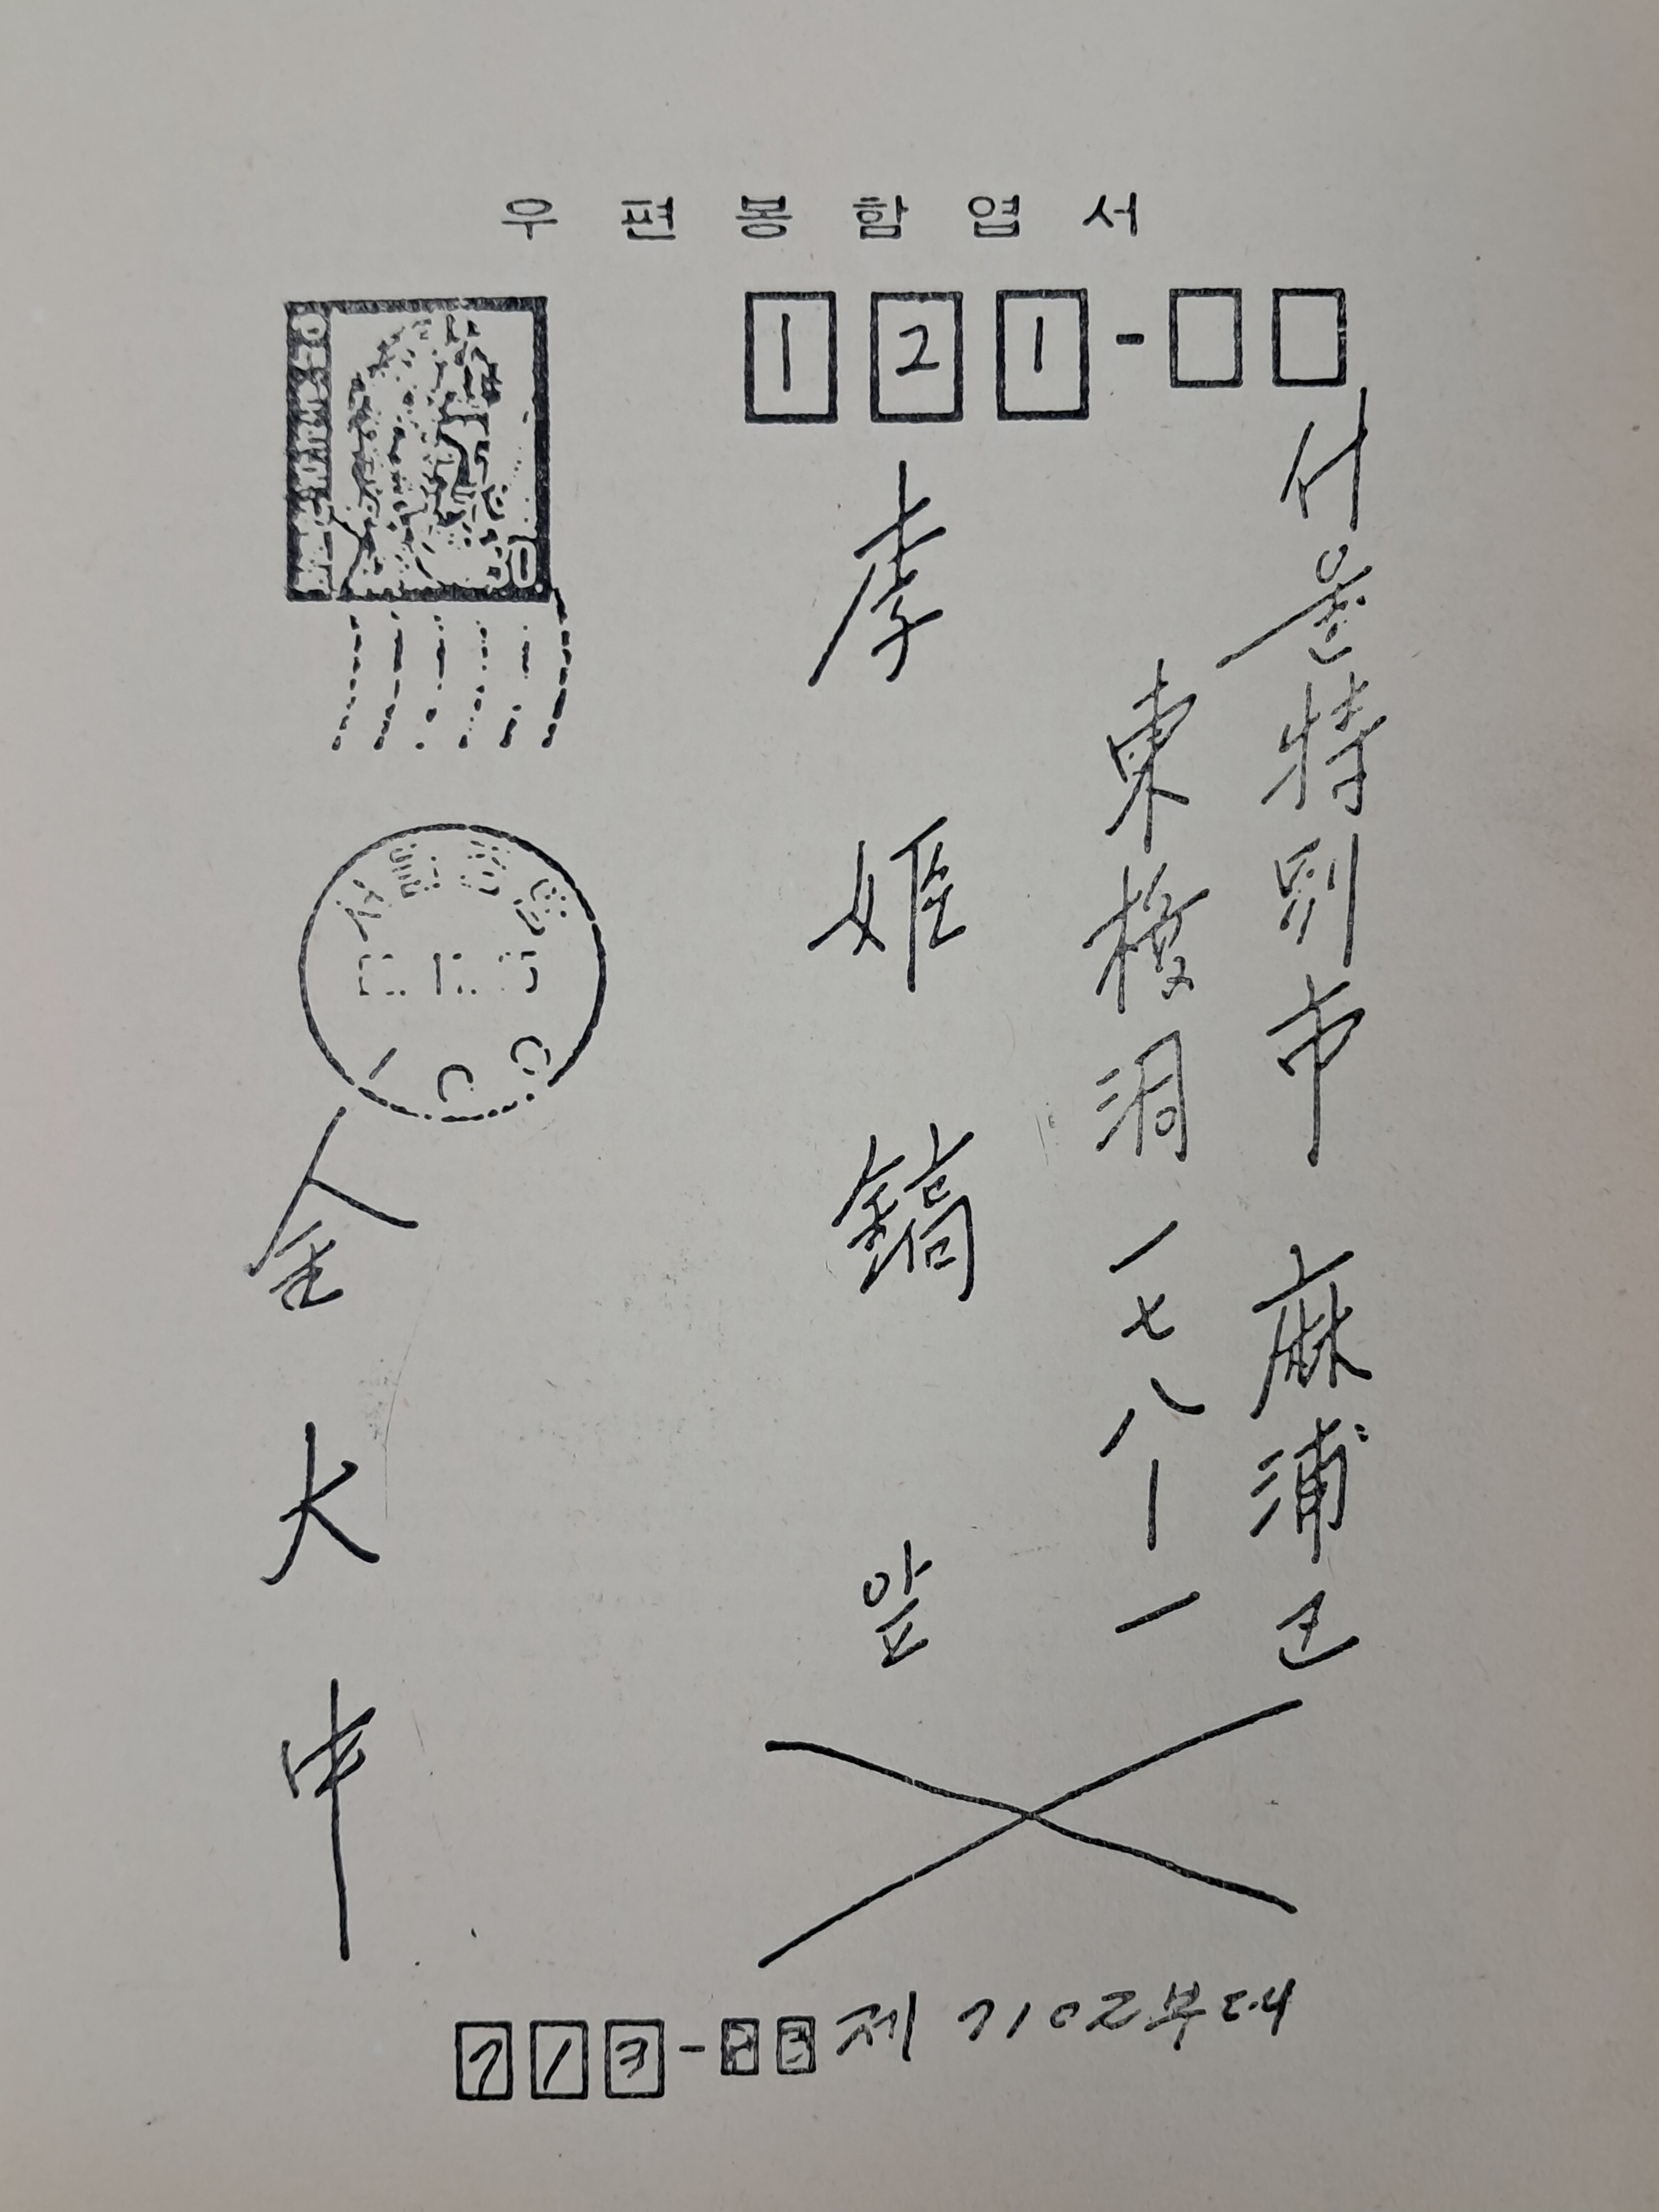 우편봉함엽서
121-
서울特別市 麻浦区
東橋洞 一七八ー一
李姬鎬 앞
金大中
713- 제 7102부대